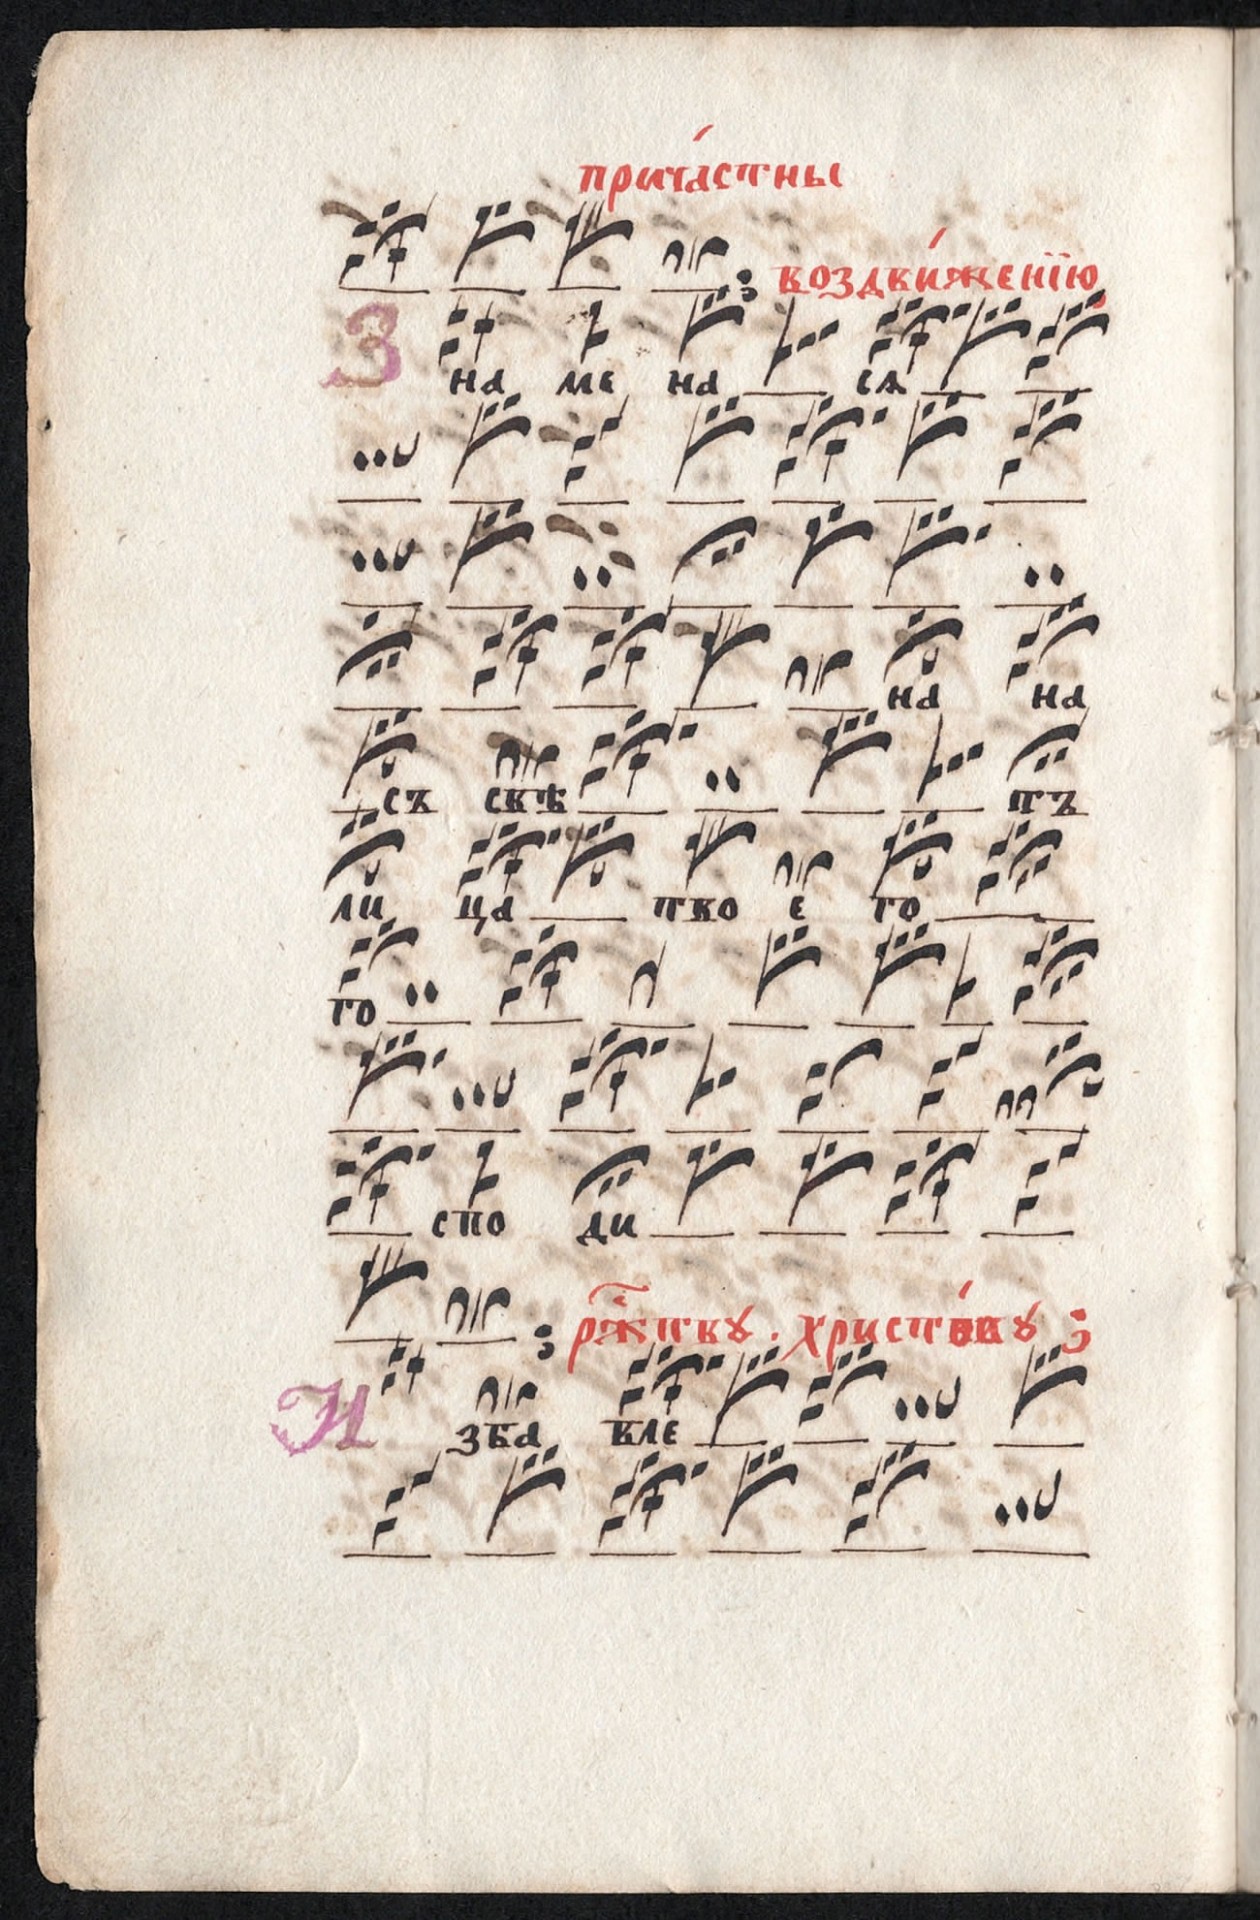 прича́стны
воздви́женїю
З на ме на сѧ
на на
съ свѣ тъ
ли ца тво е го
го
спо ди
рж҃тву . христо́ву
И зба вле